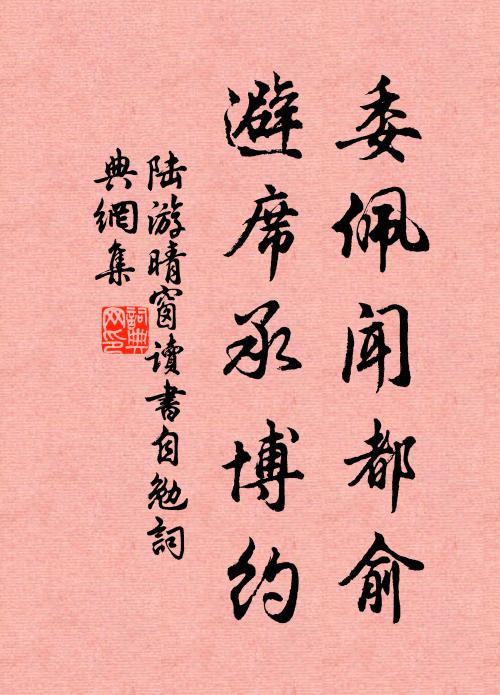 委佩闻都俞
避席承博约
陆游晴窗读书自勉词
典網集
詞典網印